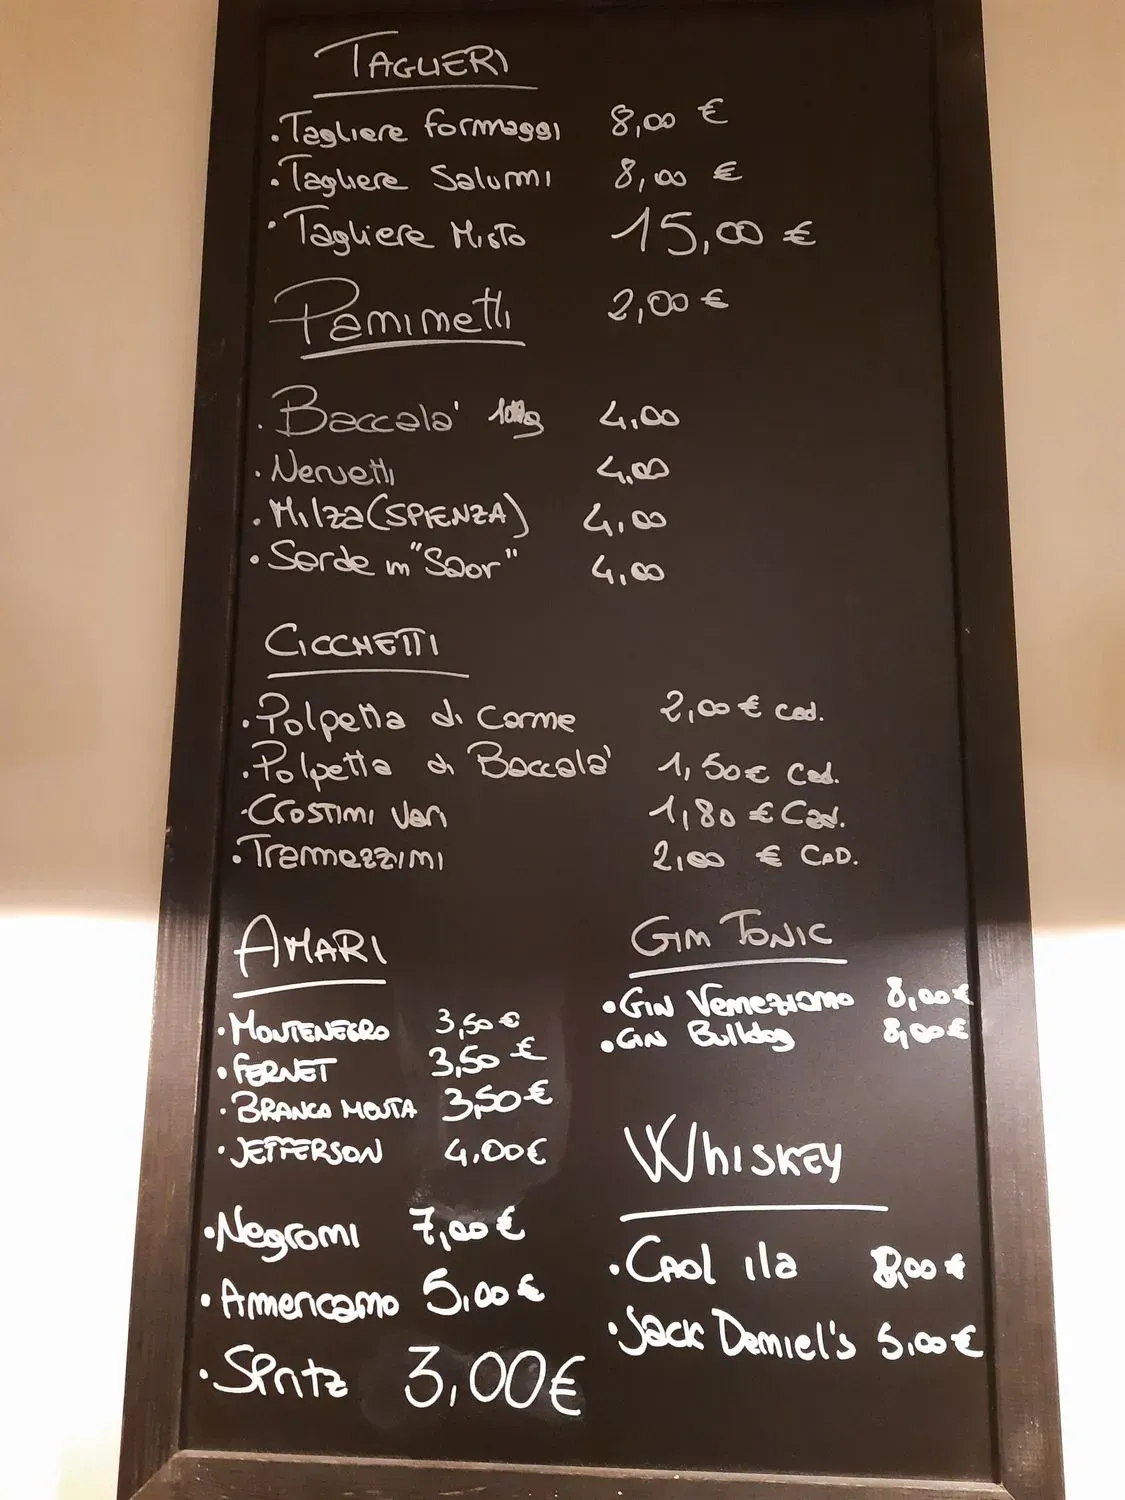 TAGLIERI
• Tagliere formaggi 8,00 €
• Tagliere Salumi 8,00 €
• Tagliere Misto 15,00 €
Paninetti 2,00 €
• Baccala' 100g 4,00
• Nervetti 4,00
• Milza (SPIENZA) 4,00
• Sarde in "Saor" 4,00
CICCHETTI
• Polpetta di Carne 2,00 € cad.
• Polpetta di Baccala' 1,50 € cad.
• Crostini Vari 1,80 € Cad.
• Tramezzini 2,00 € CAD.
AMARI
• MONTENEGRO 3,50 €
• FERNET 3,50 €
• BRANCA MENTA 3,50 €
• JEFFERSON 4.00 €
• Negroni 7,00 €
• Americano 5,00 €
• Spritz 3,00 €
GIN TONIC
• GIN Veneziano 8,00 €
• GIN Bulldog 8,00 €
WHISKEY
• CAOL ila 8,00 €
• Jack Daniel's 5,00 €